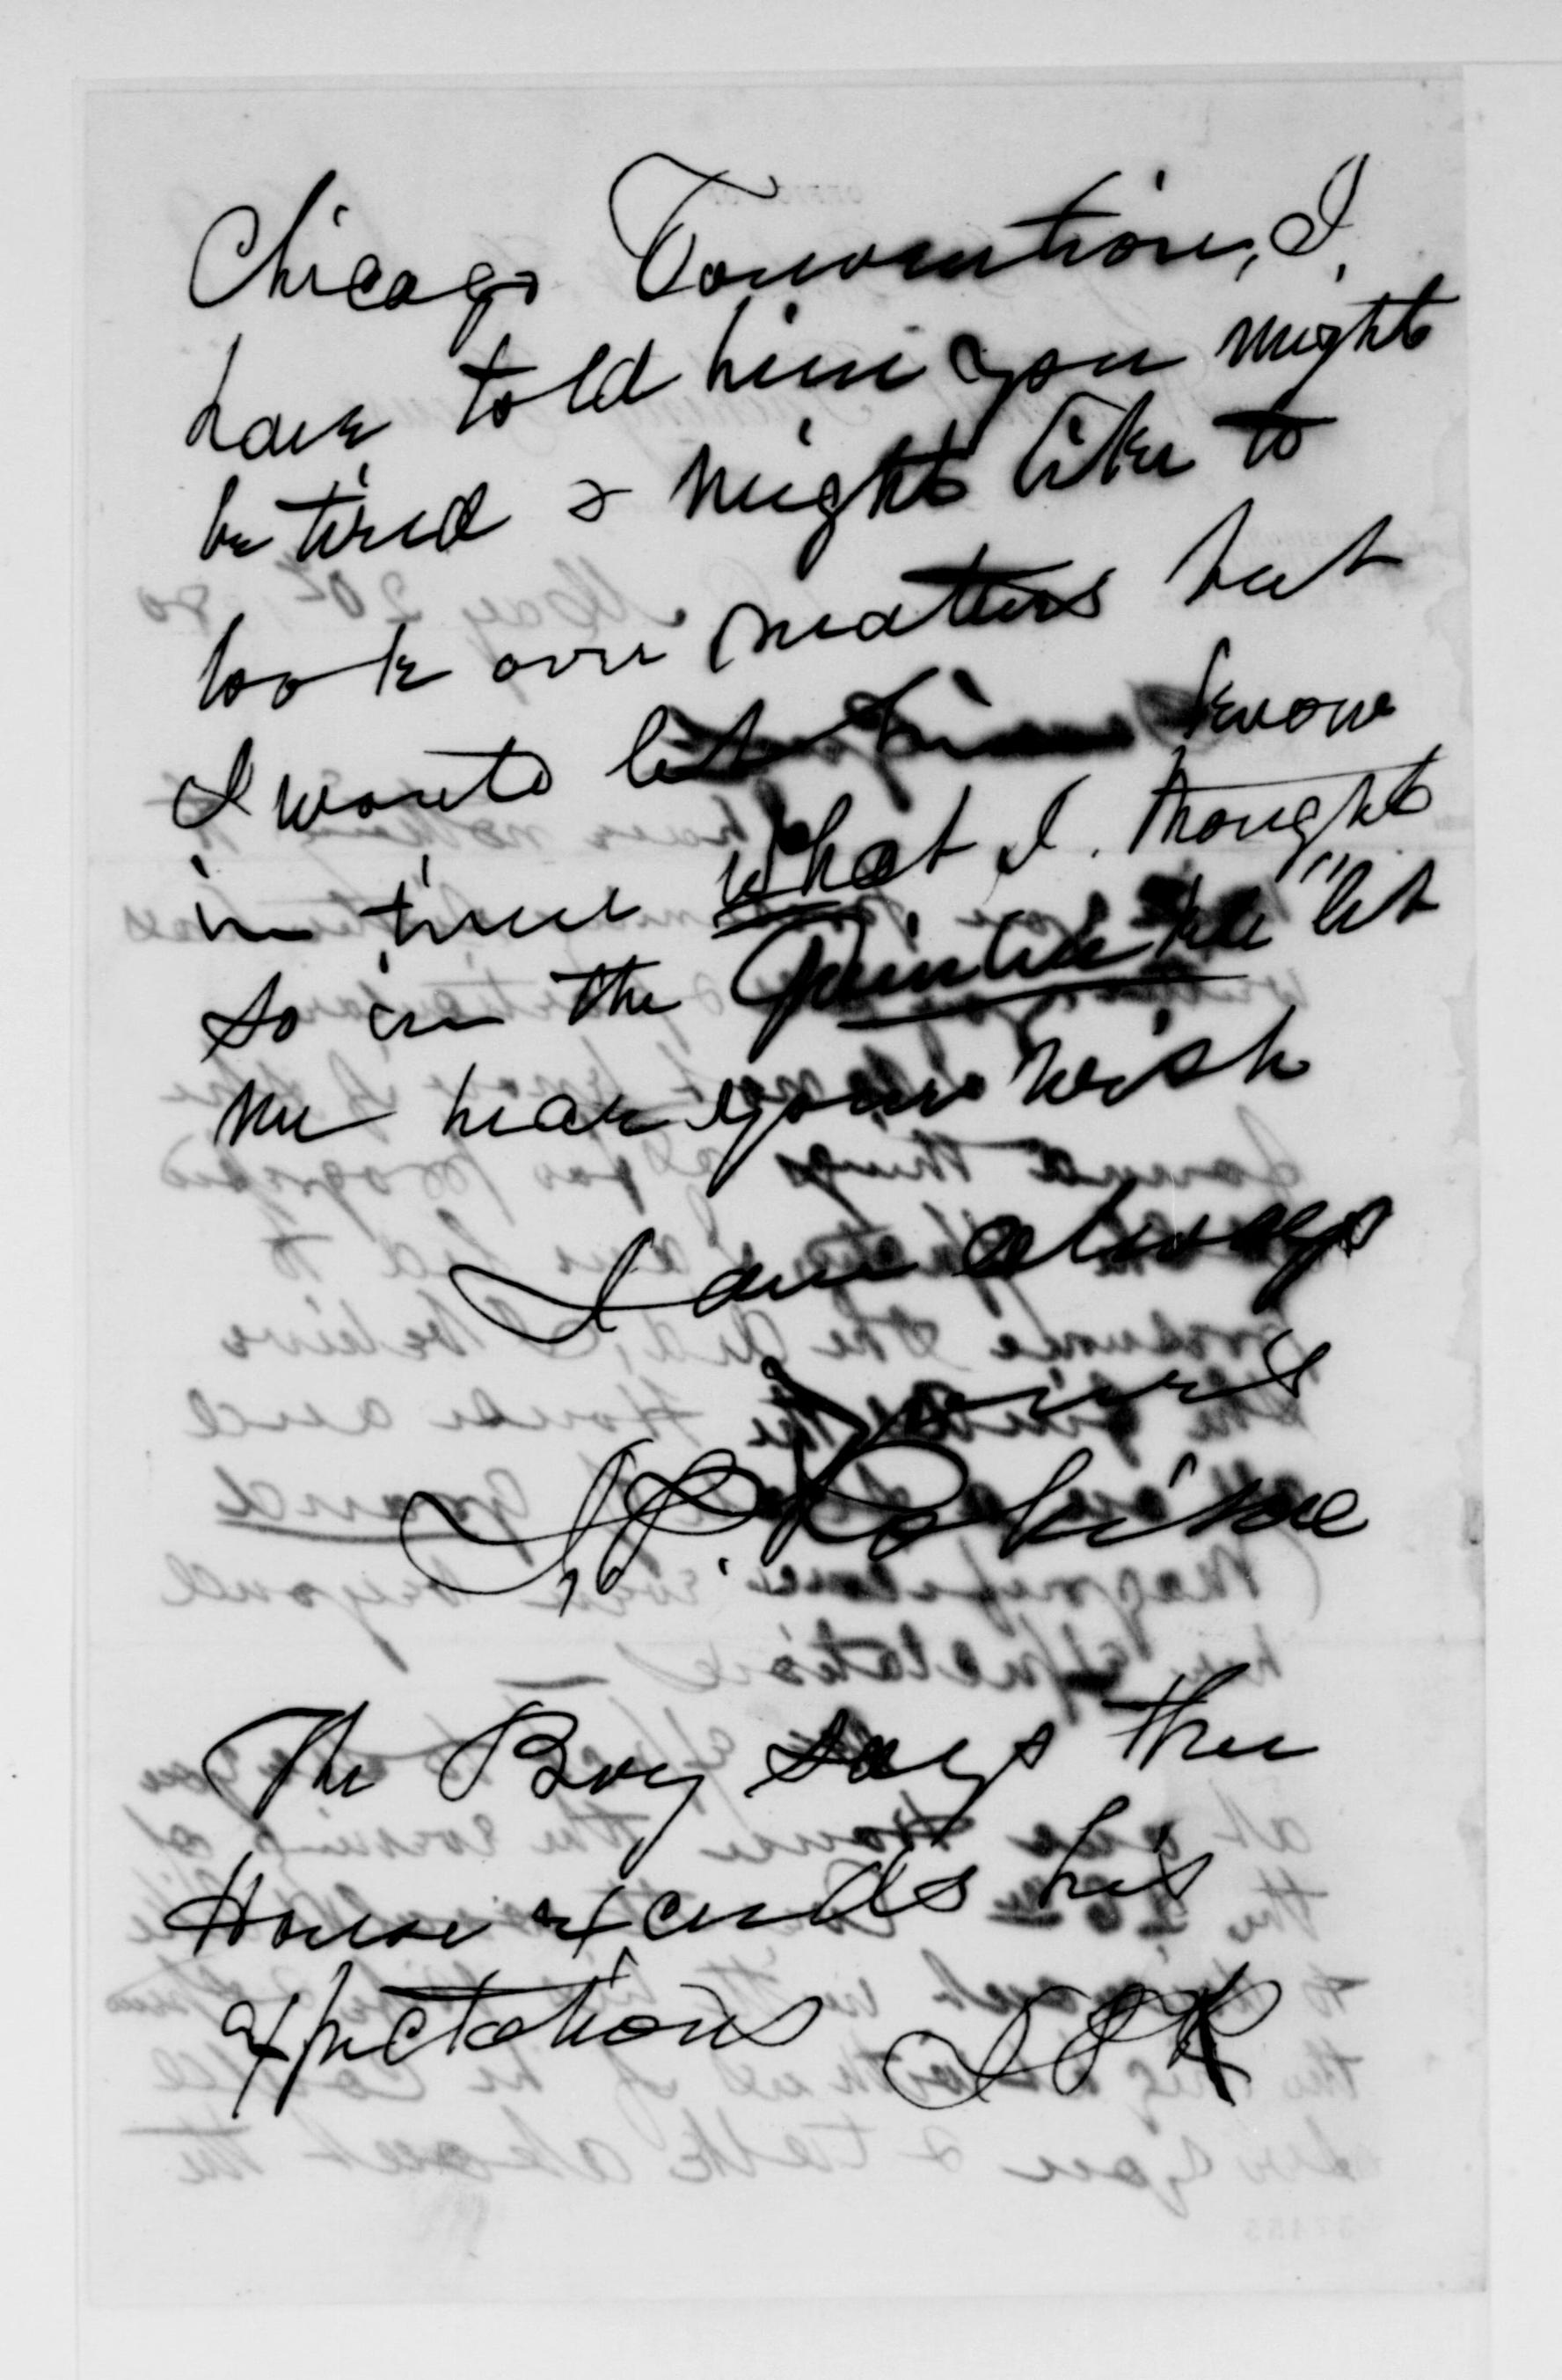 Chicago Convention, I
have told him you might
be tired & might like to
look over matters but
I would let him know
in time what I thought
so in the "let
me hear your wish
I am always
Yours
J. P. Robison
The Boy says the
House exceeds his
expectations JPR